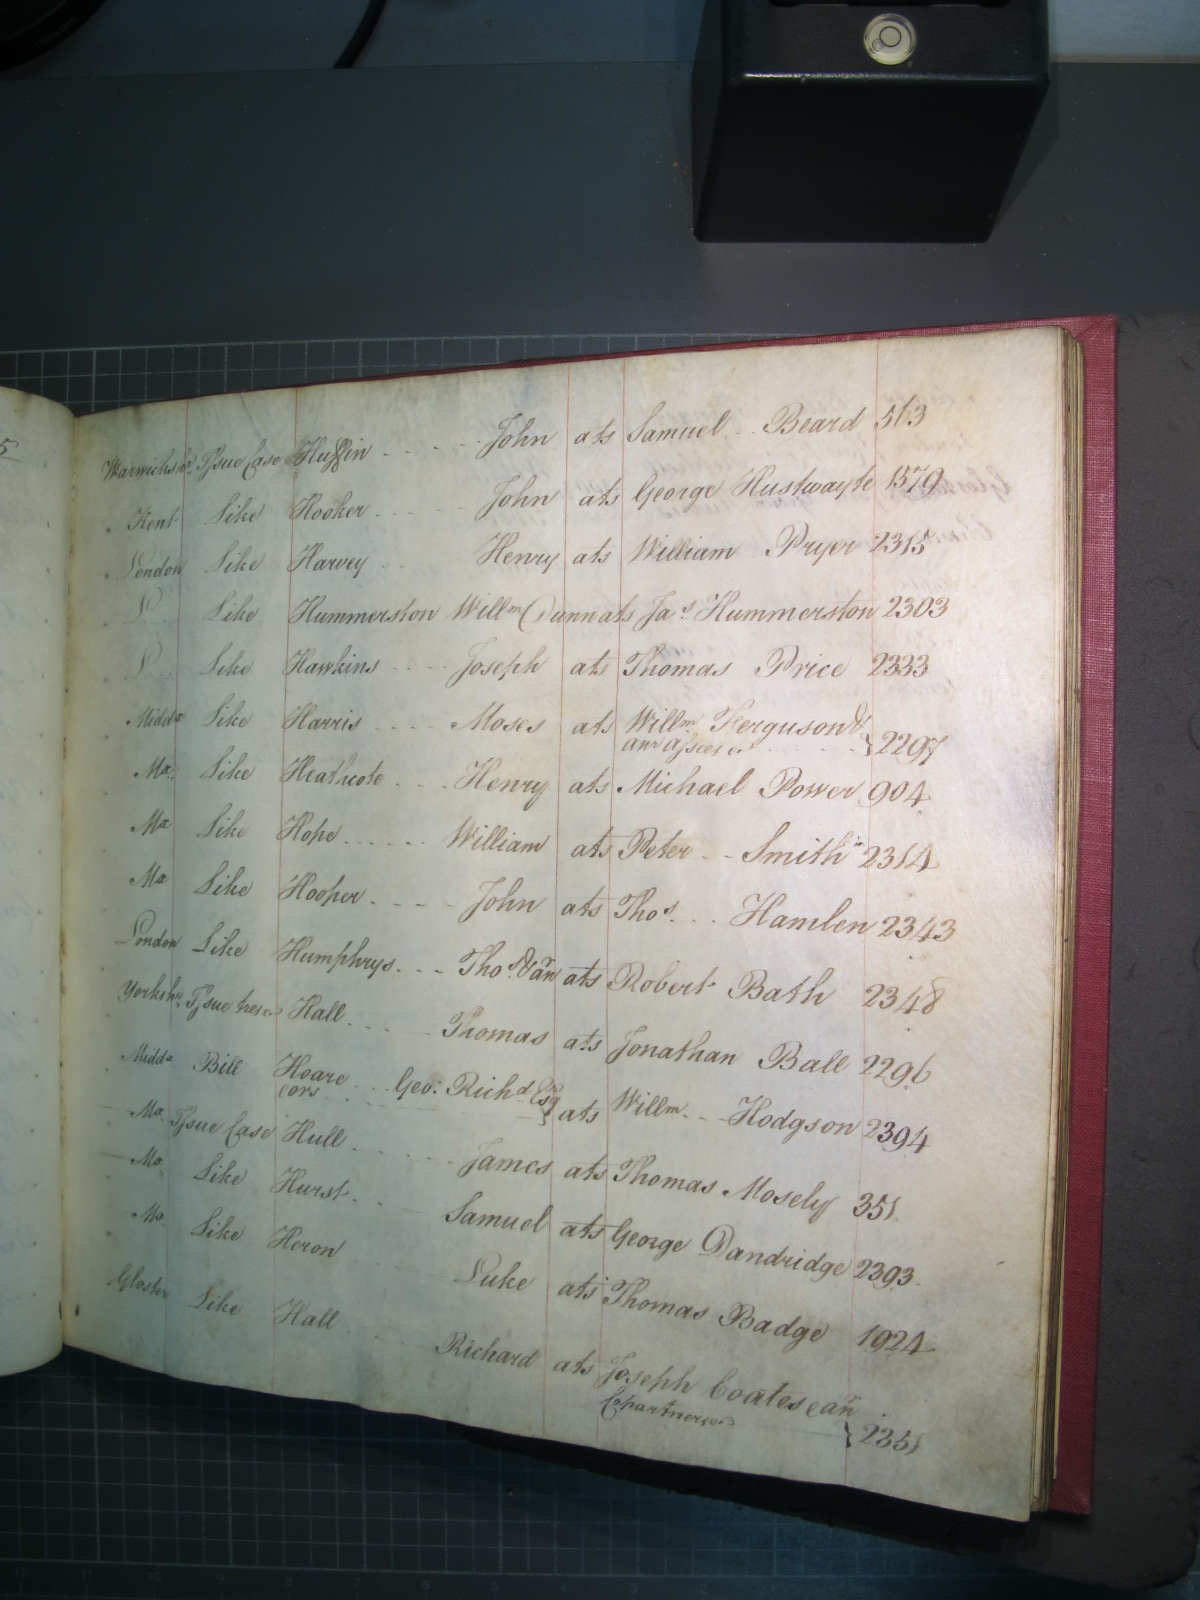 5
Warwicksh: Issue Case Huffin John ats Samuel Beard 563
Kent Like Hooker John ats George Hustwayte 1579
London Like Harvey Henry ats William Pryer 2315
L Like Hummerston Willm Dunn ats Jas Hummerston 2303
L Like Hawkins Joseph ats Thomas Price 2333
Middx Like Harris Moses ats Willm Ferguson &
an assee } 2297
Mx. Like Heathcote Henry ats Michael Power 904
Mx Like Hope William ats Peter Smith 2314
Mx Like Hooper John ats Thos. Hamlen 2343
London Like Humphrys Thos & an ats Robert Bath 2348
Yorkshr. Issue Hall Thomas ats Jonathan Ball 2296
Middx Bill Hoare Geo: Richd Esq
&ors } ats Willm Hodgson 2394
Mx. Issue Case Hull James ats Thomas Mosely 351
Mx Like Hurst Samuel ats George Dandridge 2393
Mx Like Heron Luke ats Thomas Badge 1924
Gloster Like Hall Richard ats Joseph Coates & an
} 2351